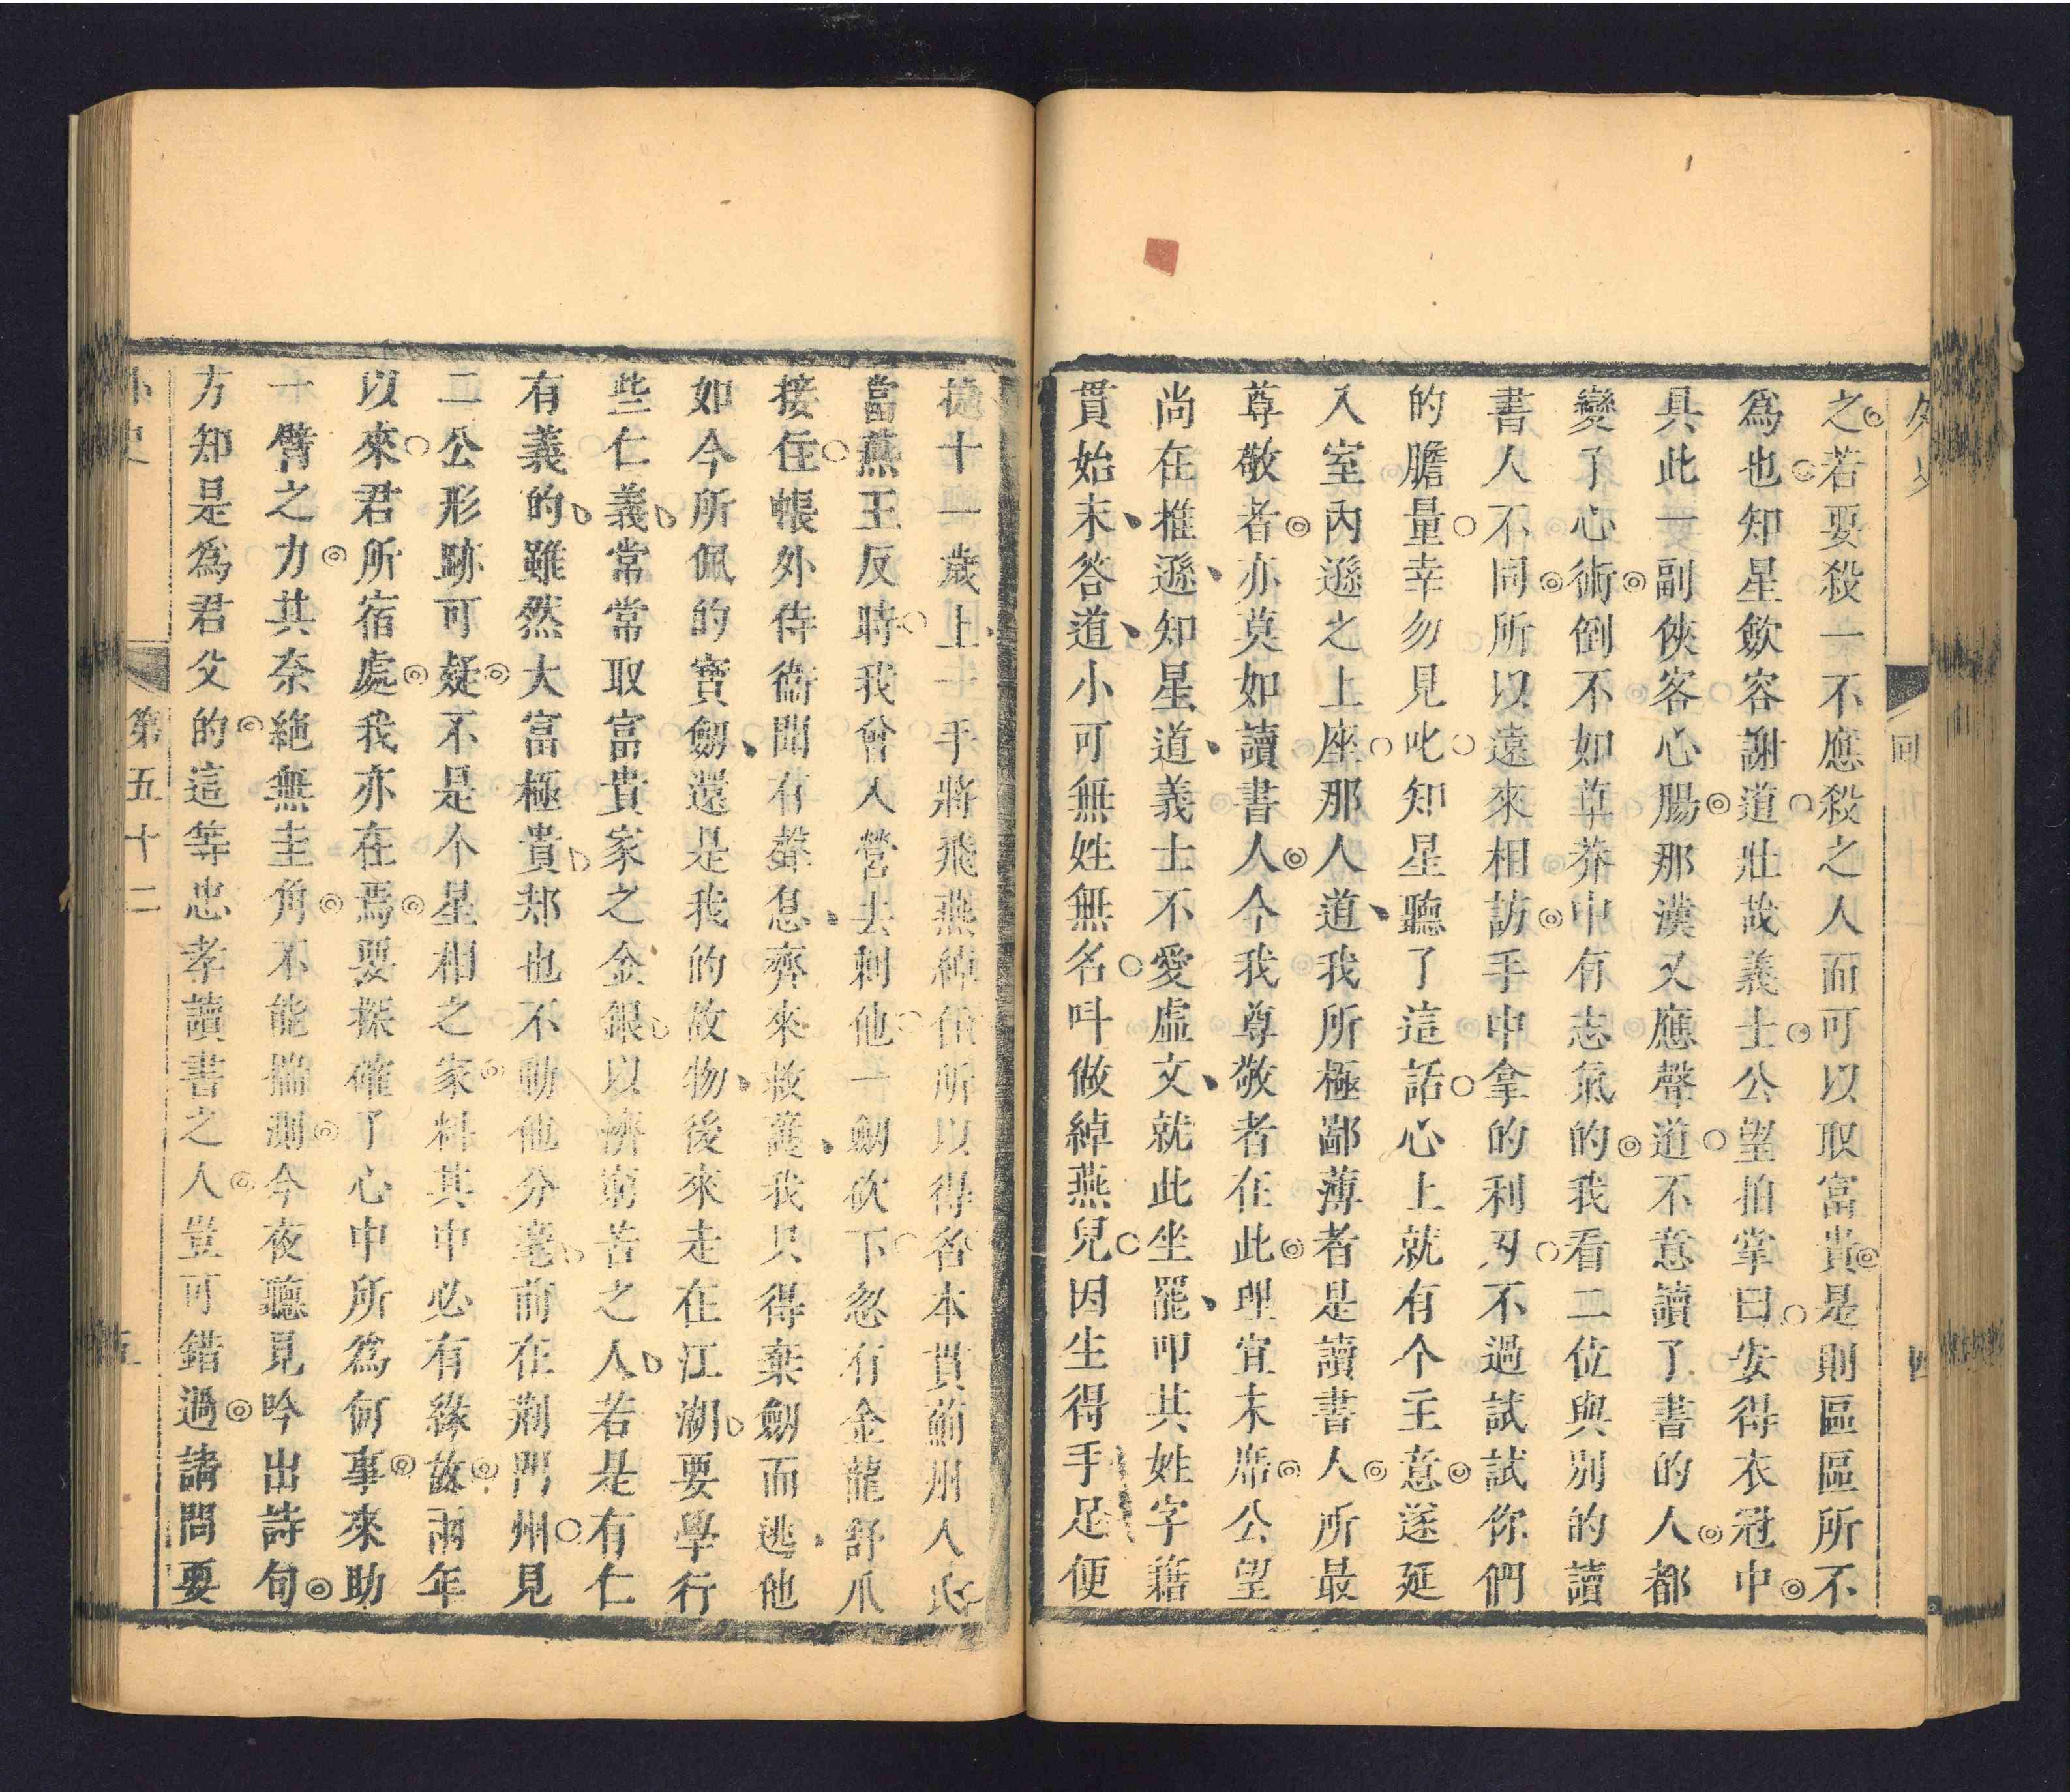 外史
回
四
之若要殺一不應殺之人而可以取富貴是則區區所不
為也知星歛容謝道壯哉義士公望拍掌曰安得衣冠中
具此一副俠客心腸那漢又應聲道不意讀了書的人都
變了心術倒不如草莽中有志氣的我看二位與別的讀
書人不同所以遠來相訪手中拿的利刃不過試試你們
的膽量幸勿見叱知星聽了這話心上就有个主意遂延
入室內遜之上座那人道我所極鄙薄者是讀書人所最
尊敬者亦莫如讀書人今我尊敬者在此理宜末席公望
尚在推遜知星道義士不愛虛文就此坐罷叩其姓字籍
貫始末答道小可無姓無名呌做綽燕兒因生得手足便
捷十一歲上手將飛燕綽住所以得名本貫薊州人氏
當燕王反時我曾入營去刺他一劒砍下忽有金龍舒爪
接住帳外侍衞聞有聲息齊來救護我只得棄劒而逃他
如今所佩的寳劒還是我的故物後來走在江湖要學行
些仁義常常取富貴家之金銀以濟窮苦之人若是有仁
有義的雖然大富極貴却也不動他分毫前在荆門州見
二公形跡可疑不是个星相之家料其中必有緣故兩年
以來君所宿處我亦在焉要探確了心中所為何事來助
一臂之力其奈絶無圭角不能揣測今夜聽見吟出詩句
方知是為君父的這等忠孝讀書之人豈可錯過請問要
外史
第五十二
五